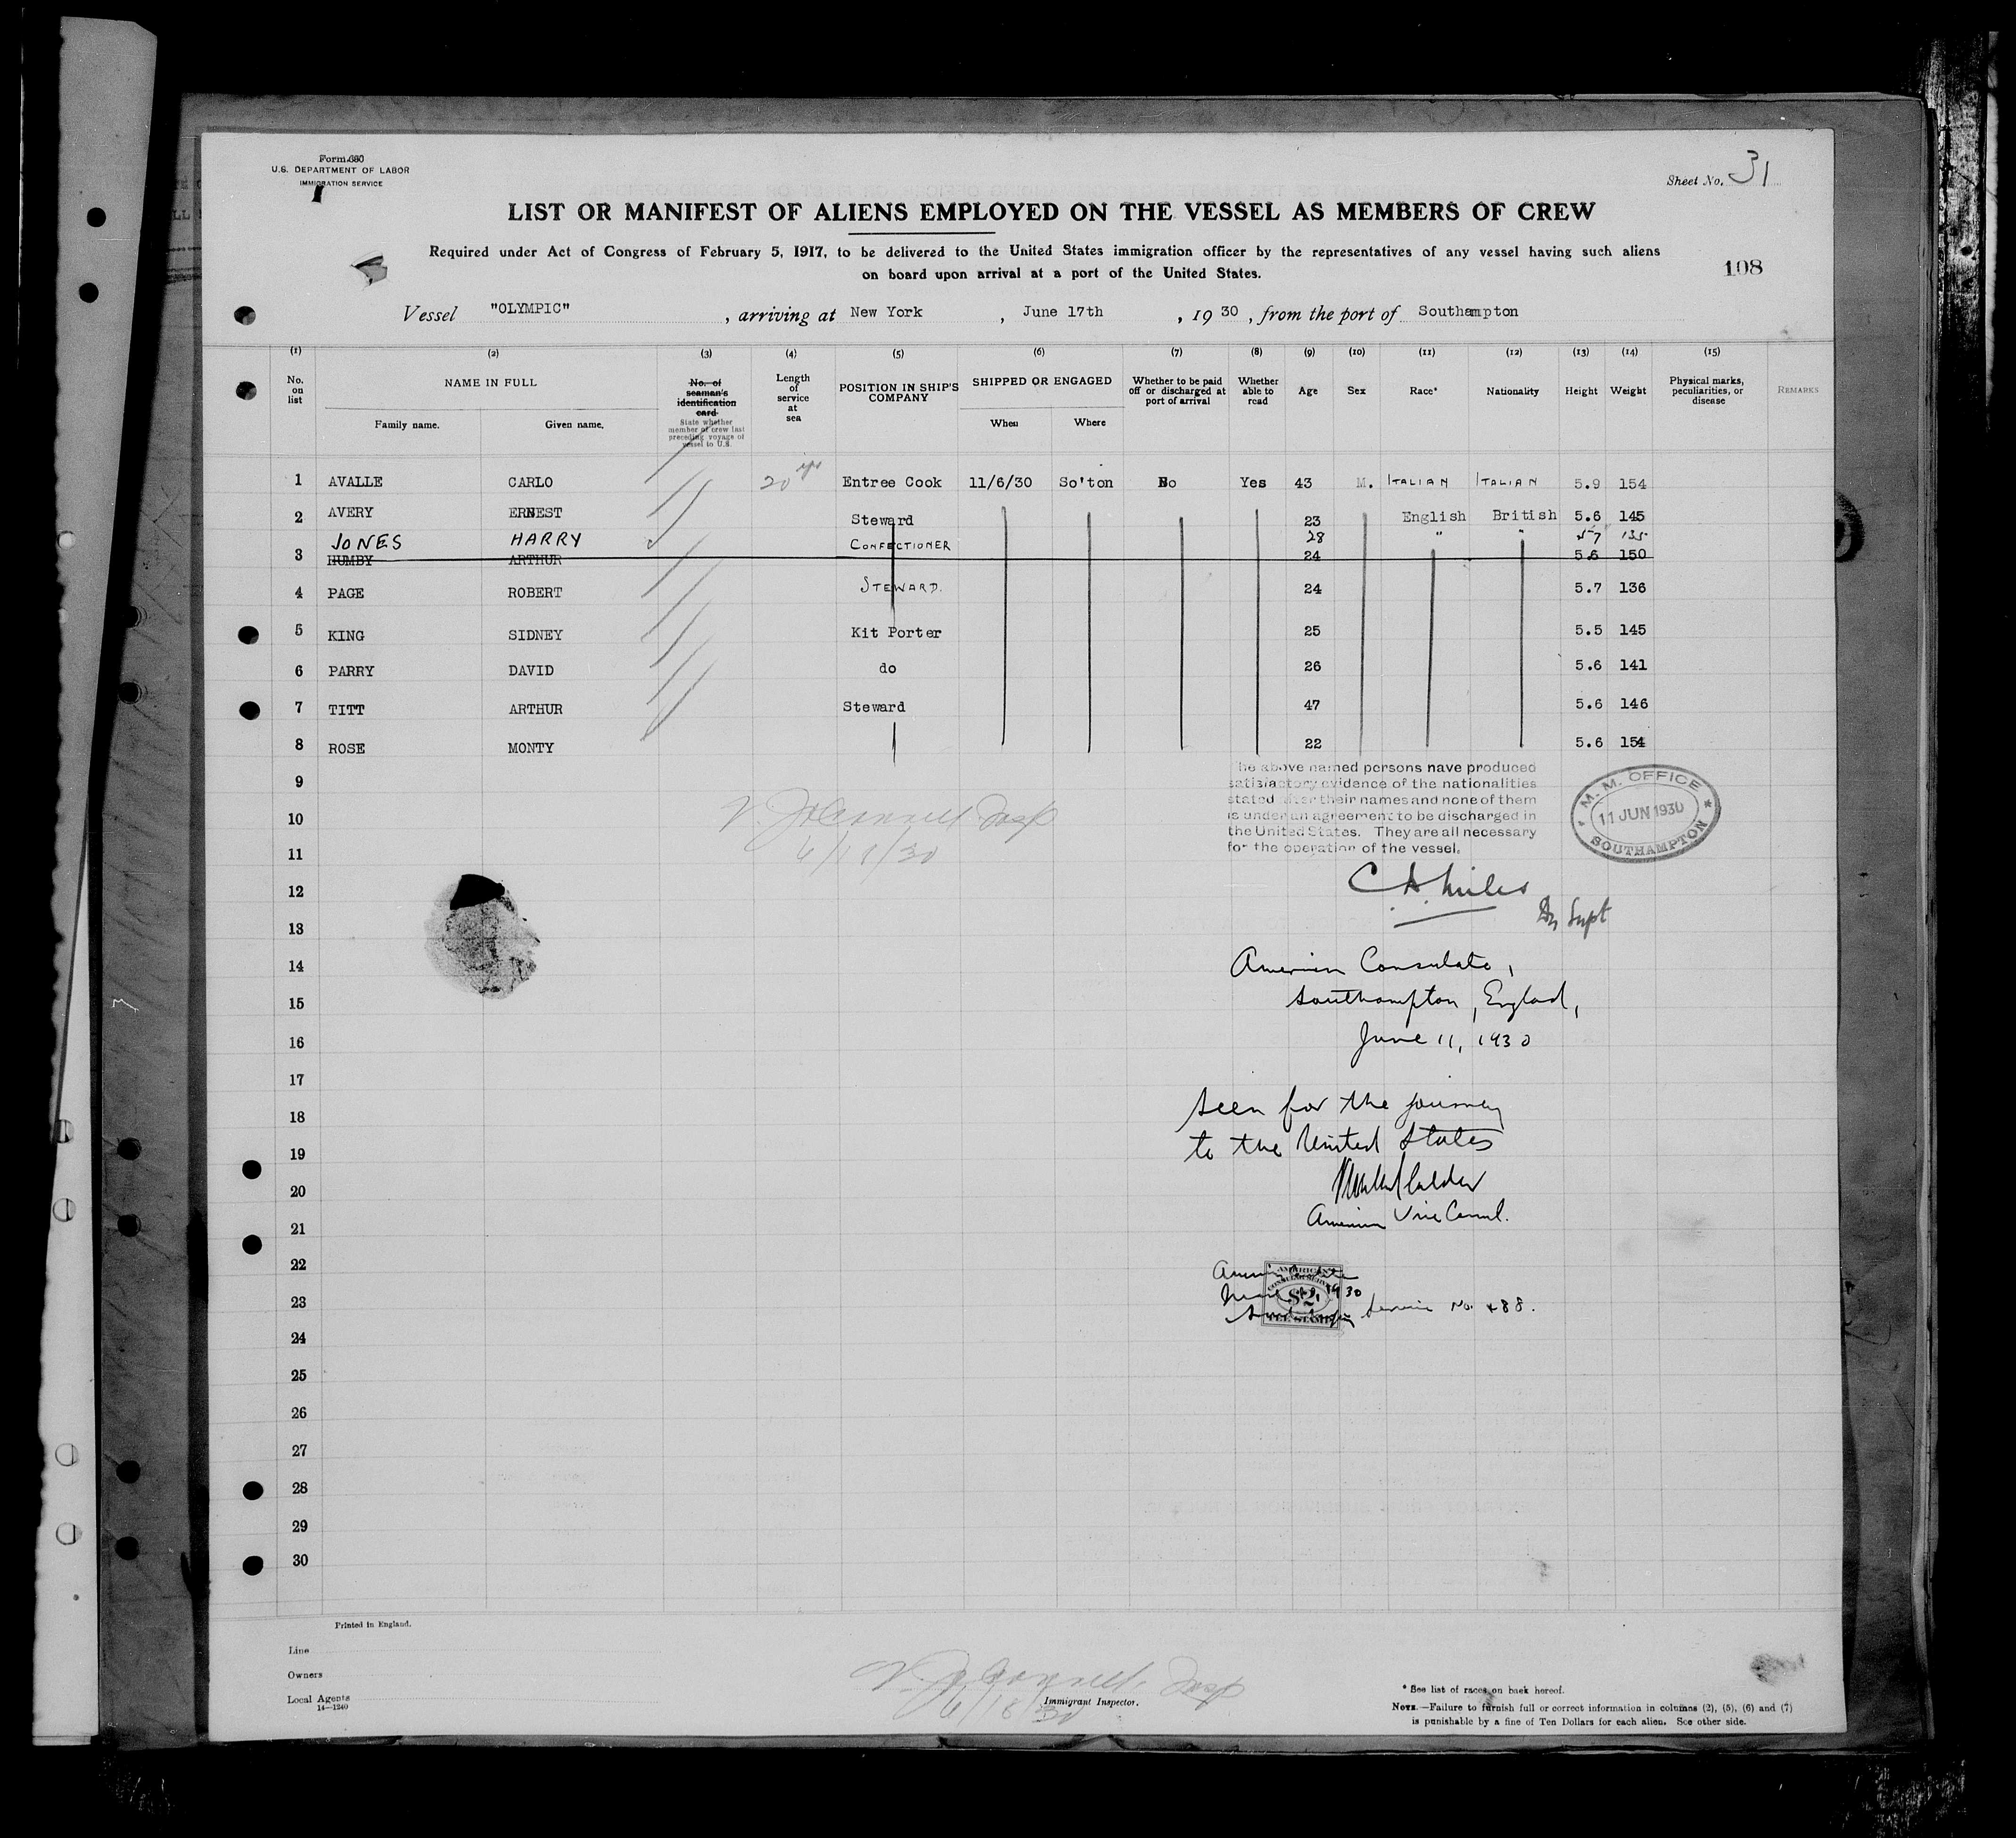 Form 680
U.S. DEPARTMENT OF LABOR
IMMIGRATION SERVICE
Sheet No. 31
LIST OR MANIFEST OF ALIENS EMPLOYED ON THE VESSEL AS MEMBERS OF CREW
Required under Act of Congress of February 5, 1917, to be delivered to the United States immigration officer by the representatives of any vessel having such aliens
on board upon arrival at a port of the United States.
108
Vessel "OLYMPIC", arriving at New York, June 17th, 1930, from the port of Southampton
(1) (2) (3) (4) (5) (6) (7) (8) (9) (10) (11) (12) (13) (14) (15)
No. on list NAME IN FULL Family name. Given name. No. of seaman's identification card State whether member of crew last preceding voyage of vessel to U.S. Length of service at sea POSITION IN SHIP'S COMPANY SHIPPED OR ENGAGED When Where Whether to be paid off or discharged at port of arrival Whether able to read Age Sex Race* Nationality Height Weight Physical marks, peculiarities, or disease REMARKS
1 AVALLE CARLO 20 yrs Entree Cook 11/6/30 So'ton No Yes 43 M. ITALIAN ITALIAN 5.9 154
2 AVERY ERNEST Steward 23 English British 5.6 145
JONES HARRY CONFECTIONER 28 " " 5 7 135
3 HUMBY ARTHUR 24 5.6 150
4 PAGE ROBERT STEWARD. 24 5.7 136
5 KING SIDNEY Kit Porter 25 5.5 145
6 PARRY DAVID do 26 5.6 141
7 TITT ARTHUR Steward 47 5.6 146
8 ROSE MONTY 22 5.6 154
9
10
11
12
13
14
15
16
17
18
19
20
21
22
23
24
25
26
27
28
29
30
The above named persons have produced
satisfactory evidence of the nationalities
stated after their names and none of them
is under an agreement to be discharged in
the United States. They are all necessary
for the operation of the vessel.
M. M. OFFICE
11 JUN 1930
SOUTHAMPTON
6/18/30
C A Miles
Dy Supt
American Consulate,
Southampton, England,
June 11, 1930
Seen for the journey
to the United States
American Vice Consul.
AMERICAN
CONSULAR SERVICE
$2
FEE STAMP
1930
Service No. 488.
Printed in England.
Line
Owners
Local Agents
14—1240
6/18/30
Immigrant Inspector.
* See list of races on back hereof.
NOTE.—Failure to furnish full or correct information in columns (2), (5), (6) and (7)
is punishable by a fine of Ten Dollars for each alien. See other side.